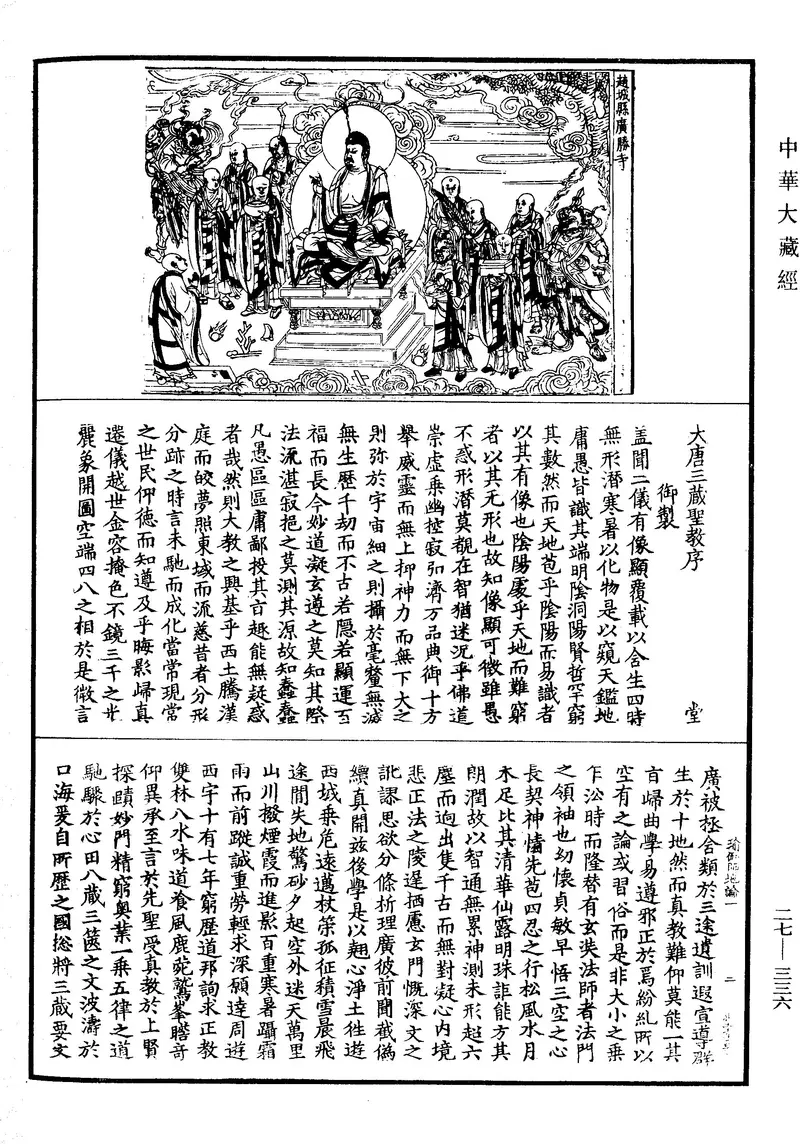 中華大藏經
二七—三三六
趙城縣廣勝寺
大唐三藏聖教序 堂
御製
盖聞二儀有像顯覆載以含生四時
無形潛寒暑以化物是以窺天鑑地
庸愚皆識其端明陰洞陽賢哲罕窮
其數然而天地苞乎陰陽而易識者
以其有像也陰陽處乎天地而難窮
者以其无形也故知像顯可徵雖愚
不惑形潛莫覩在智猶迷況乎佛道
崇虛乘幽控寂弘濟万品典御十方
舉威靈而無上抑神力而無下大之
則弥於宇宙細之則攝於毫釐無滅
無生歷千劫而不古若隐若顯運百
福而長今妙道凝玄遵之莫知其際
法流湛寂挹之莫測其源故知蠢蠢
凡愚區區庸鄙投其旨趣能無疑惑
者哉然則大教之興基乎西土騰漢
庭而皎夢照東域而流慈昔者分形
分跡之時言未馳而成化當常現常
之世民仰德而知遵及乎晦影歸真
遷儀越世金容掩色不鏡三千之光
麗象開圖空端四八之相於是微言
瑜伽師地論一 二
廣被拯含類於三途遺訓遐宣導群
生於十地然而真教難仰莫能一其
旨歸曲學易遵邪正於焉紛糺所以
空有之論或習俗而是非大小之乘
乍沿時而隆替有玄奘法師者法門
之領袖也幼懷貞敏早悟三空之心
長契神情先苞四忍之行松風水月
未足比其清華仙露明珠詎能方其
朗潤故以智通無累神測未形超六
塵而迥出隻千古而無對凝心內境
悲正法之陵遲栖慮玄門慨深文之
訛謬思欲分條析理廣彼前聞截偽
續真開茲後學是以翹心淨土往遊
西域乘危遠邁杖策孤征積雪晨飛
途間失地驚砂夕起空外迷天萬里
山川撥煙霞而進影百重寒暑躡霜
雨而前蹤誠重勞輕求深願達周遊
西宇十有七年窮歷道邦詢求正教
雙林八水味道飡風鹿菀鷲峯瞻奇
仰異承至言於先聖受真教於上賢
探賾妙門精窮奧業一乘五律之道
馳驟於心田八藏三篋之文波濤於
口海爰自所歷之國捴將三藏要文